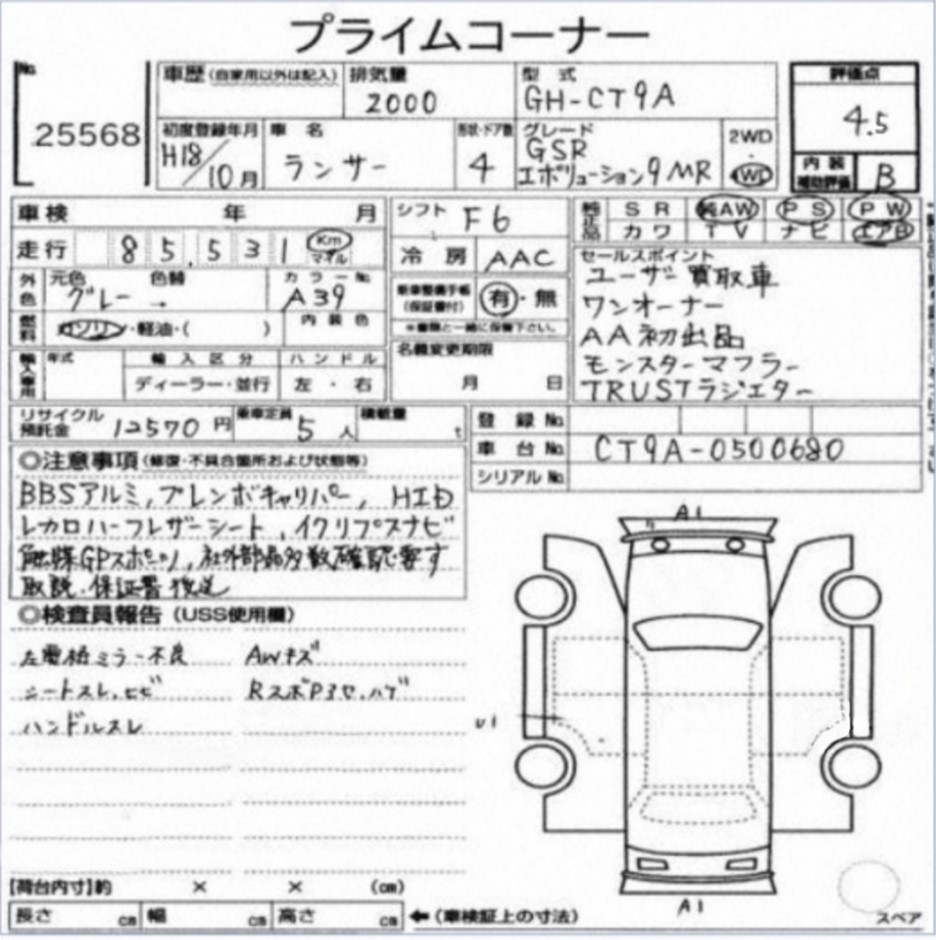 プライムコーナー
No.
25568
車歴 (自家用以外は記入)
排気量
2000
型式
GH-CT9A
評価点
4.5
初度登録年月
H18/10月
車名
ランサー
形状・ドア数
4
グレード
GSR
エボリューション9MR
2WD
・
4WD
内装
補助評価
B
車検 年 月
走行 85,531 Km マイル
シフト F6
冷房 AAC
純正品
SR 純AW PS PW
カワ TV ナビ エアB
外色
元色 色替
グレー →
カラーNo.
A39
燃料
ガソリン・軽油・( )
内装色
新車整備手帳
(保証書付)
有・無
※書類と一緒に保管下さい。
セールスポイント
ユーザー買取車
ワンオーナー
AA初出品
モンスターマフラー
TRUSTラジエター
輸入車用
年式
輸入区分
ディーラー・並行
ハンドル
左・右
名義変更期限
月 日
リサイクル
預託金
12570円
乗車定員
5人
積載量
t
登録No.
車台No. CT9A-0500680
シリアルNo.
◎注意事項 (修復・不具合箇所および状態等)
BBSアルミ,ブレンボキャリパー, HID
レカロハーフレザーシート,イクリプスナビ
触媒GPスポーツ,社外部品多数確認要す
取説,保証書後送
◎検査員報告 (USS使用欄)
左電格ミラー不良
シートスレ,ヒビ
ハンドルスレ
AWキズ
RスポPヨセ,ハゲ
A1
U1
A1
【荷台内寸】約 × × (cm)
長さ cm 幅 cm 高さ cm
←(車検証上の寸法)
スペア